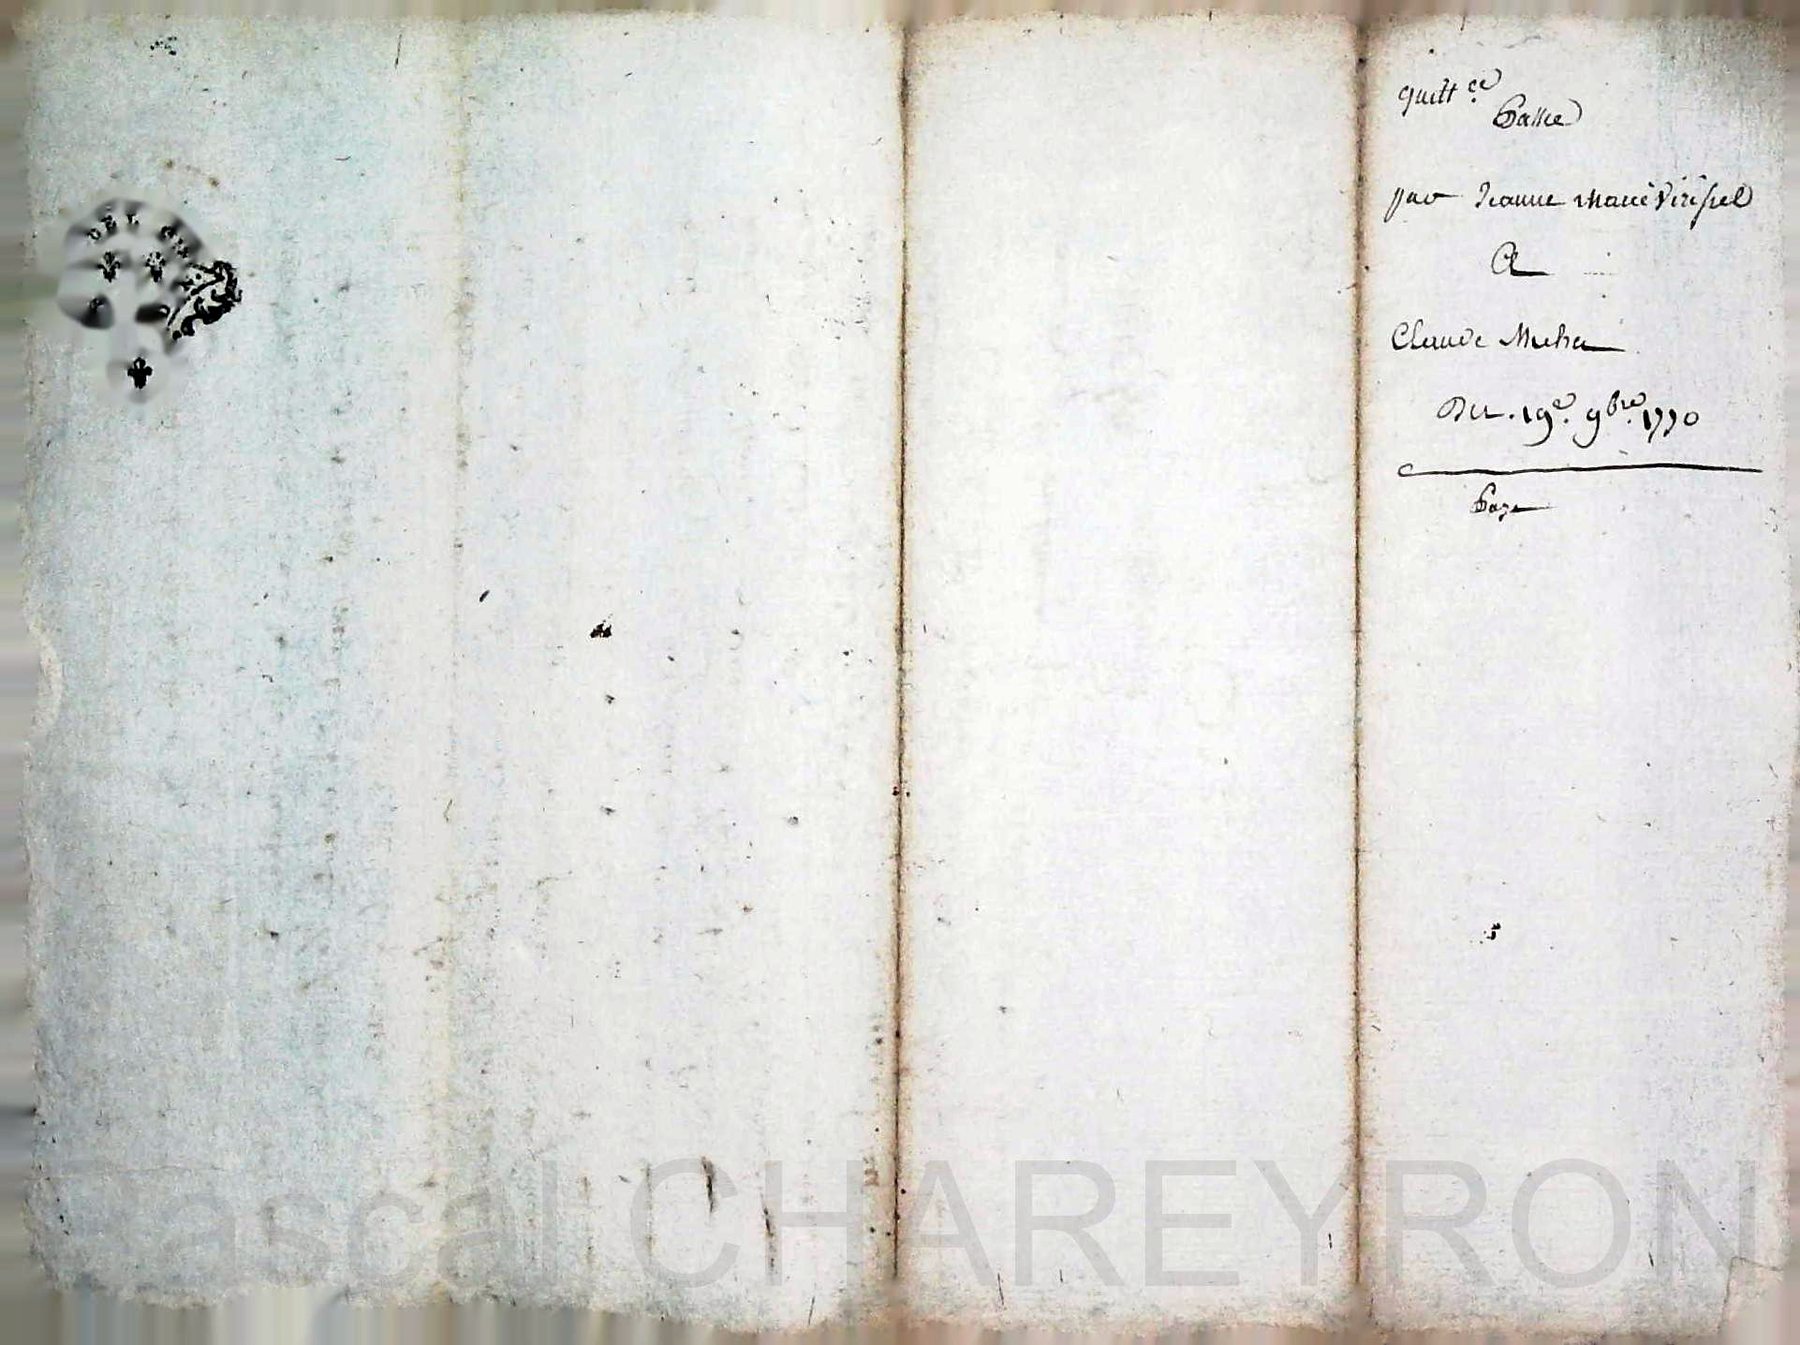 DEL
quitt.ce
Passée
par Jeanne Marie Virissel
A
Claude Micha
Du. 19e. 9bre. 1770
Paye
Pascal CHAREYRON